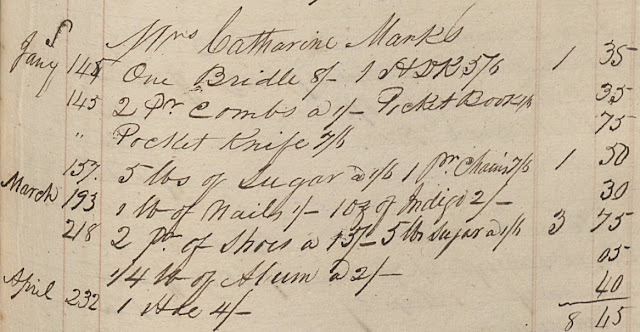 Mrs Catharine Marks
Jany 145 One Bridle 8/- 1 HDK 5/6 1 35
145 2 Pr Combs a 1/- Pocket Book 1/6 35
" Pocket Knife 7/6 75
157. 5 lbs of Sugar a 1/6 1 pr Chains 7/6 1 50
March 193 1 lb of Nails 1/- 1 oz of Indigo 2/- 30
218 2 Pr of Shoes a 15/- 5 lb Sugar a 1/6 3 75
1/4 lb of Alum a 2/- 05
April 232 1 Hoe 4/- 40
8 45